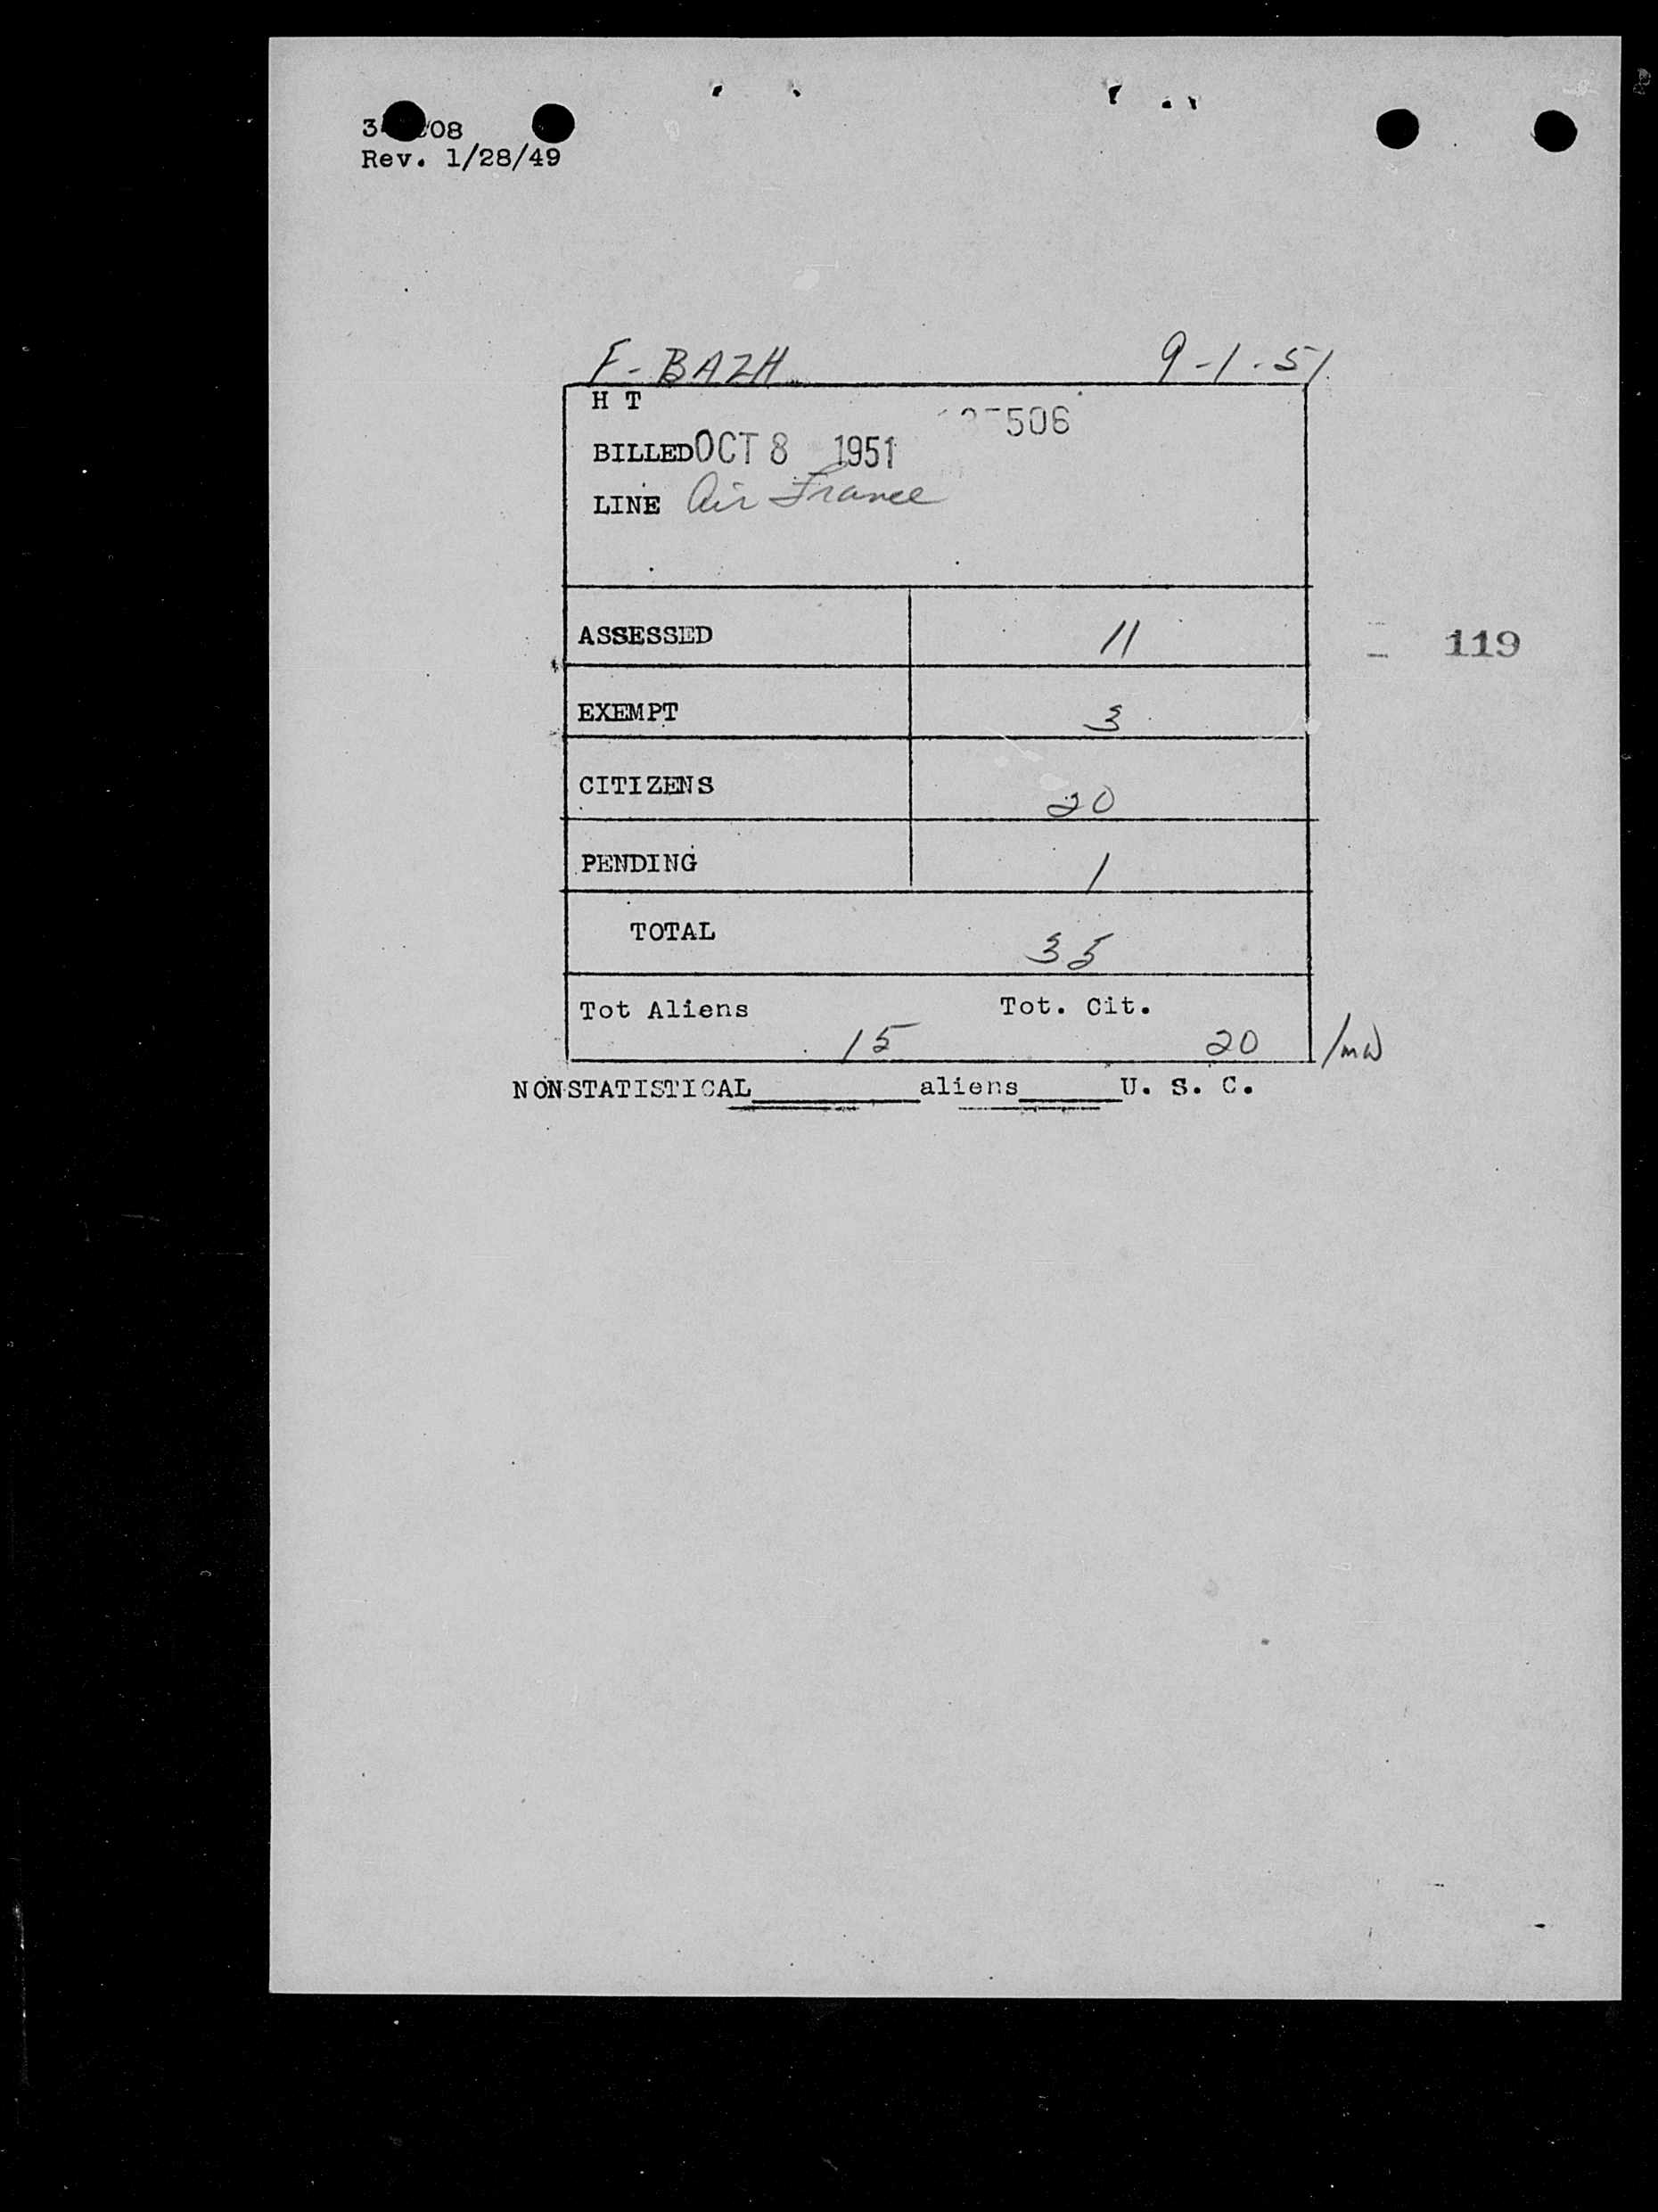 Rev. 1/28/49
F-BAZH 9-1-51
H T
506
BILLED OCT 8 1951
LINE Air France
ASSESSED 11
119
EXEMPT 3
CITIZENS 20
PENDING 1
TOTAL 35
Tot Aliens Tot. Cit.
15 20
NONSTATISTICAL________aliens_____U. S. C.